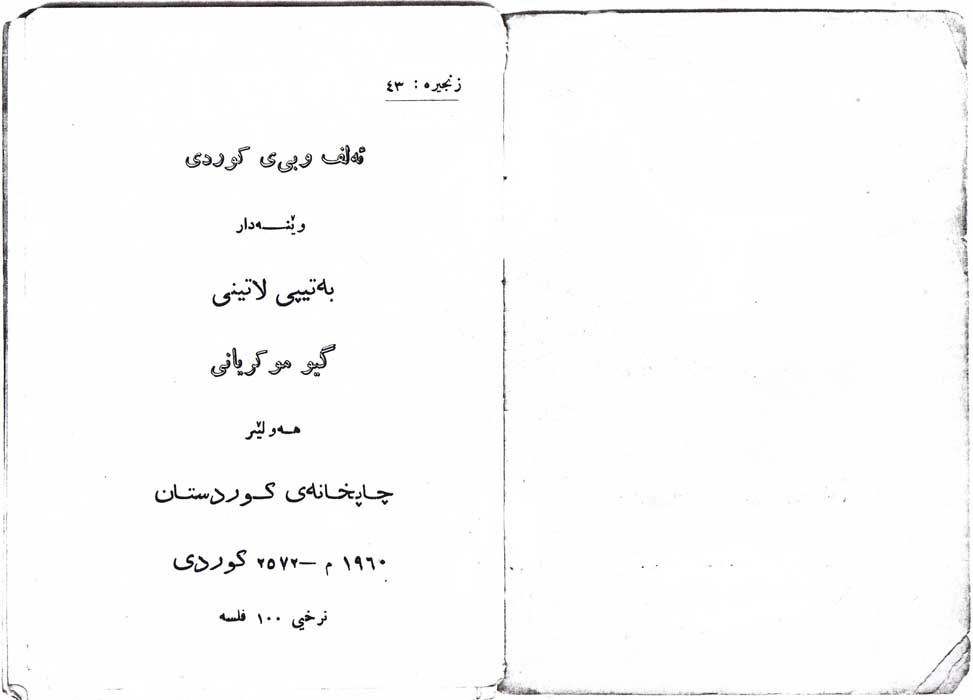 زنجیره : ٤٣
ئەلف وبی ی کوردی
وێنــەدار
بەتیپی لاتینی
گیو موکریانی
هـەولێر
چـاپخـانەی کـوردستـان
١٩٦٠ م –٢٥٧٢ کوردی
نرخی ١٠٠ فلسه